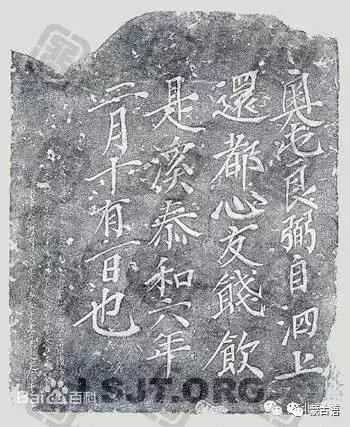 奧屯良弼自泗上
還都心友餞飲
是溪泰和六年
二月十有一日也
Bai百科
LSJT.ORG